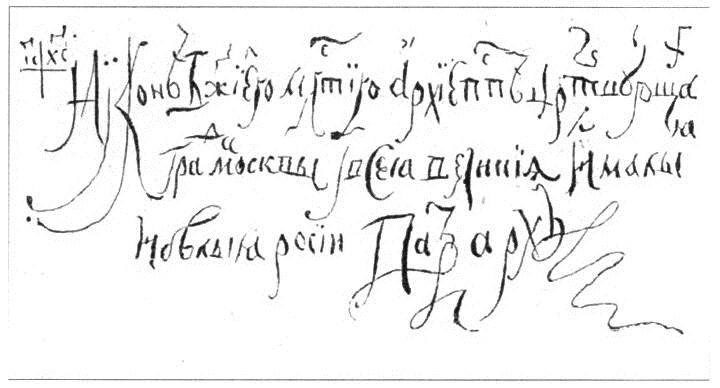 Іс Хс Нїконъ Бжїею млстїю архїеппъ црствующа
града москвы ївсеꙗ великїѧ и малыꙗ
и бѣлыꙗ росїи Па архъ